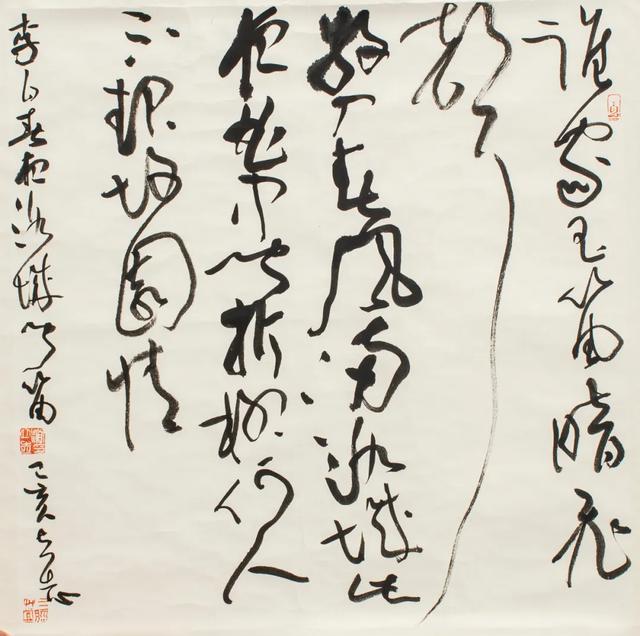 誰家玉笛暗飛
聲
散入春風滿洛城此
夜曲中聞折柳何人
不起故園情
李白春夜洛城聞笛 己亥